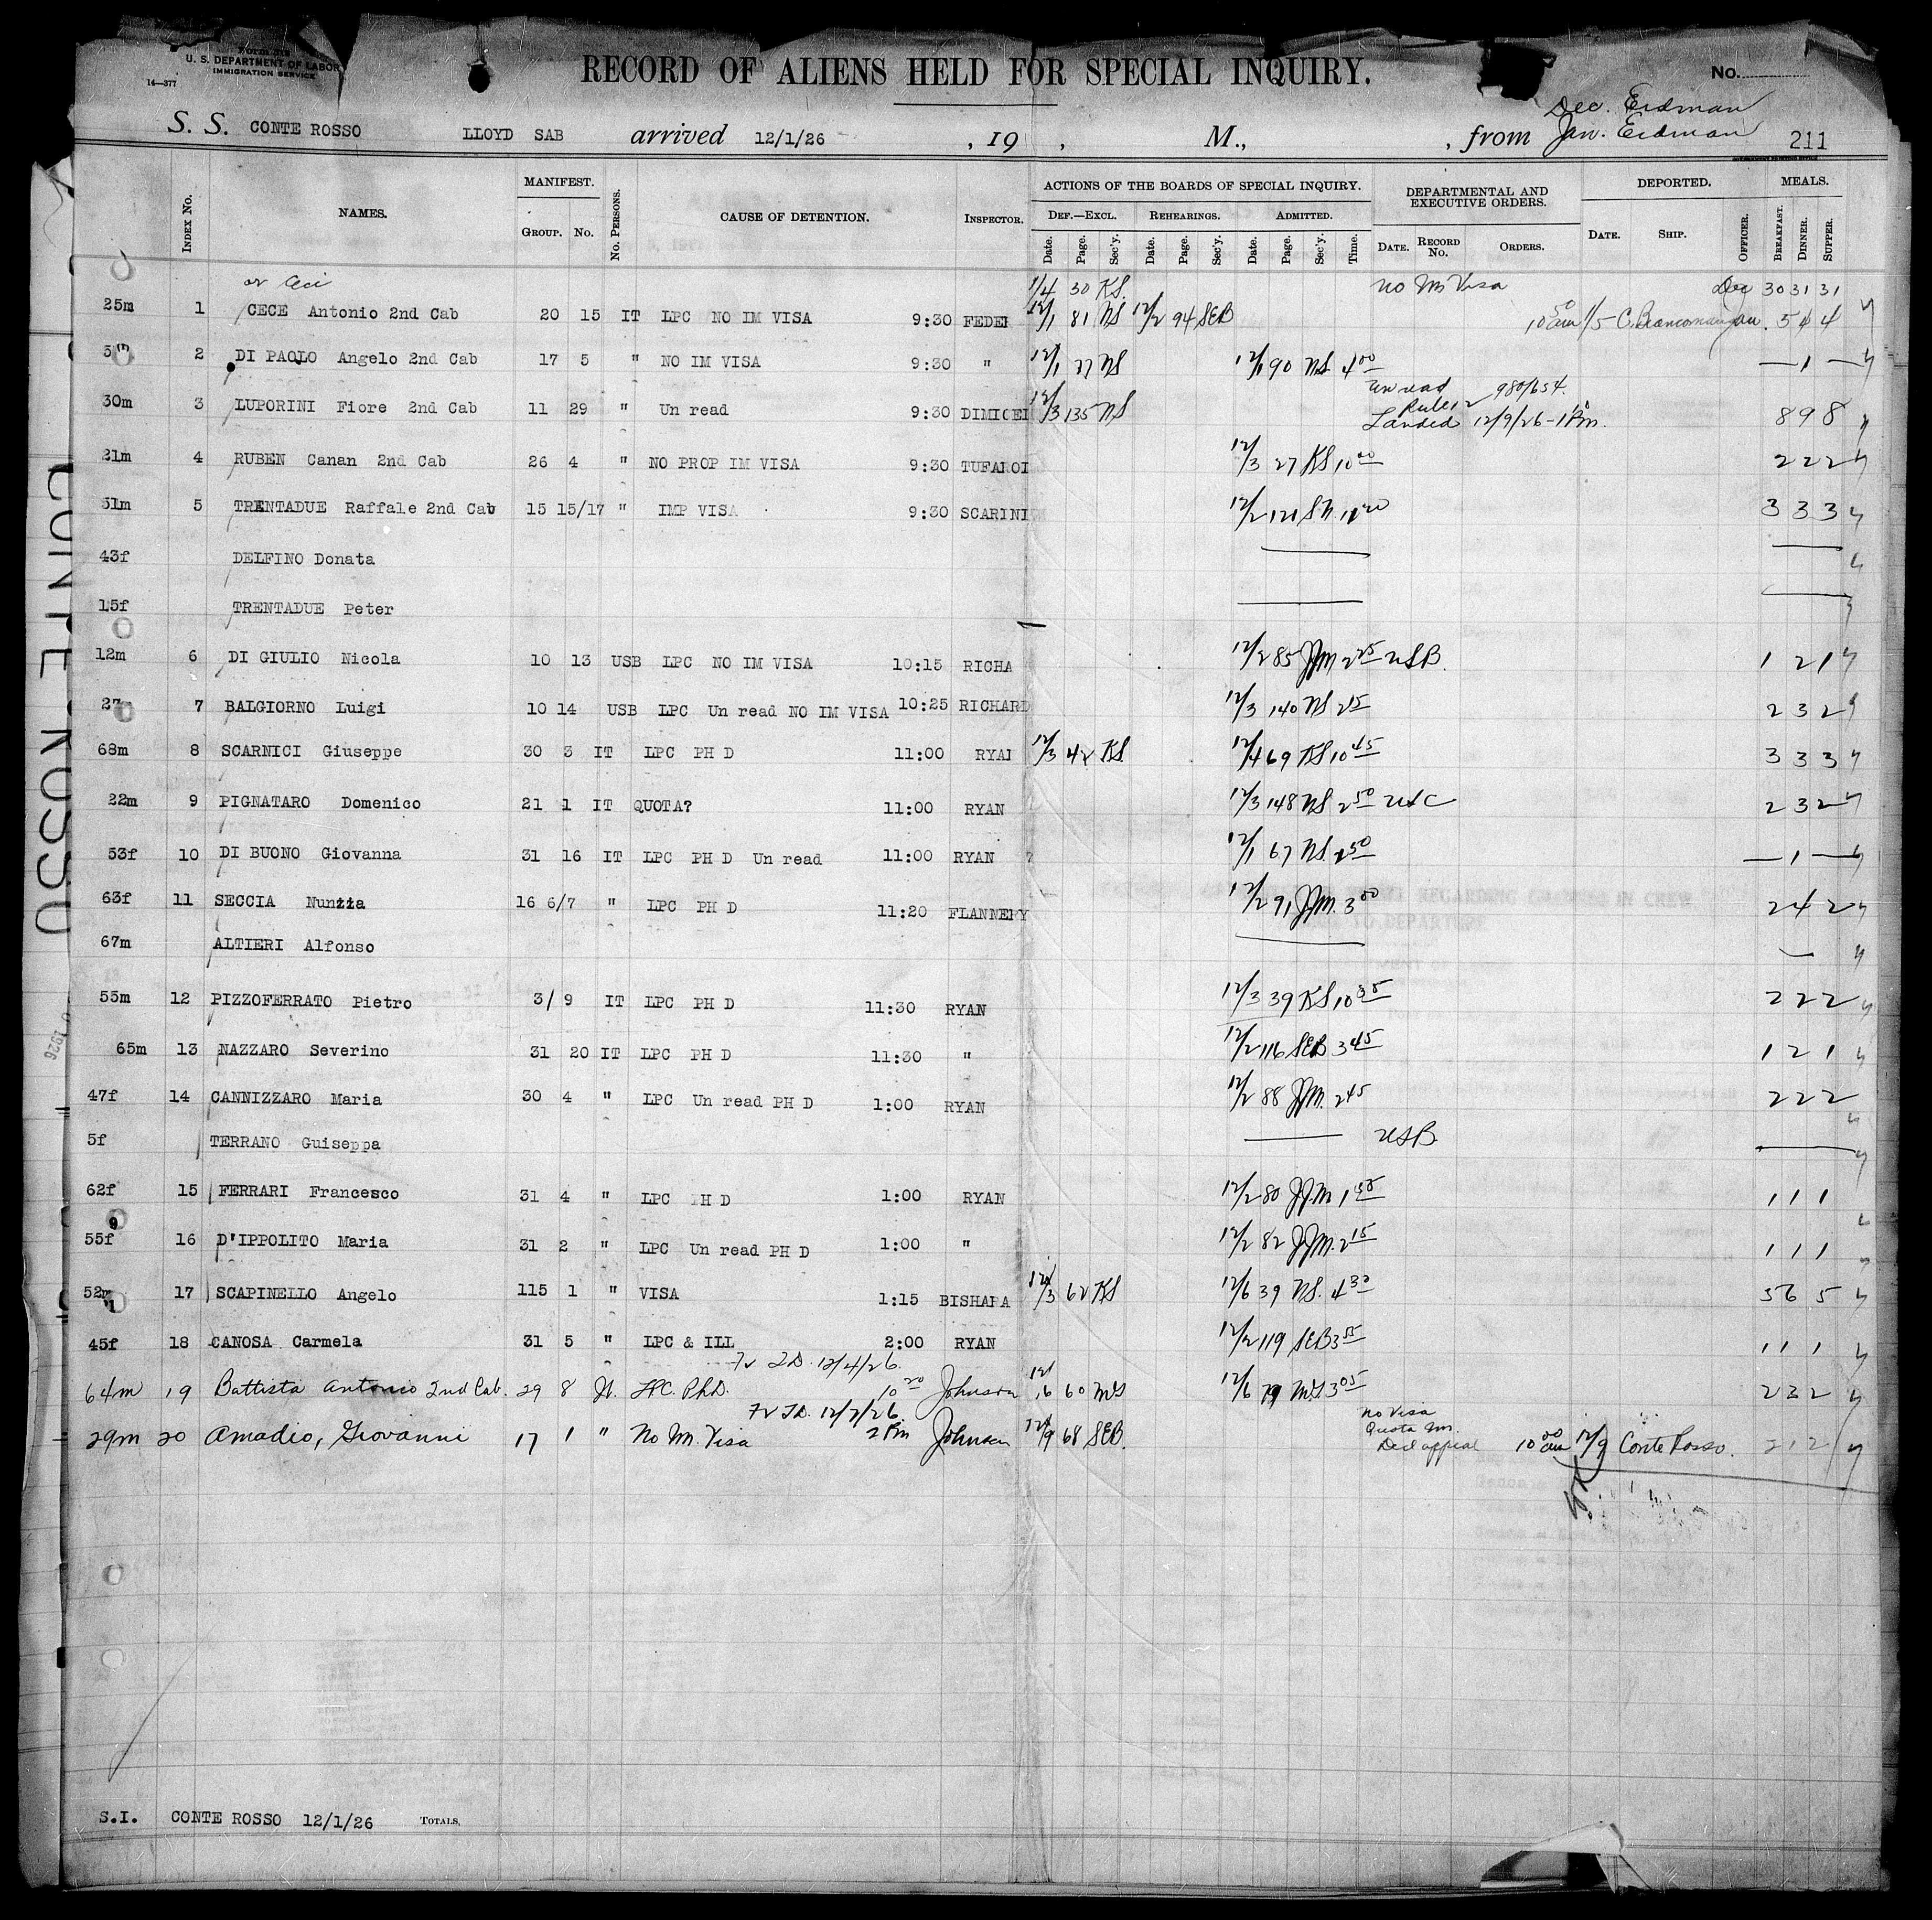 Form 512
U. S. DEPARTMENT OF LABOR
IMMIGRATION SERVICE
14—377
RECORD OF ALIENS HELD FOR SPECIAL INQUIRY.
No.
Dec. Erdman
S. S. CONTE ROSSO LLOYD SAB arrived 12/1/26 , 19 , M., , from Jan. Erdman 211
INDEX No. NAMES. MANIFEST. GROUP. No. No. PERSONS. CAUSE OF DETENTION. INSPECTOR. ACTIONS OF THE BOARDS OF SPECIAL INQUIRY. DEF.—EXCL. Date. Page. Sec'y. REHEARINGS. Date. Page. Sec'y. ADMITTED. Date. Page. Sec'y. Time. DEPARTMENTAL AND EXECUTIVE ORDERS. DATE. RECORD No. ORDERS. DEPORTED. DATE. SHIP. OFFICER. MEALS. BREAKFAST. DINNER. SUPPER.
or Ceci 1/4 30 KS. no Im Visa Dec 30 31 31
25m 1 CECE Antonio 2nd Cab 20 15 IT LPC NO IM VISA 9:30 FEDER 12/1 81 NS 12/2 94 SEB 10 am 1/5 Jan. 5 4 4
2 DI PAOLO Angelo 2nd Cab 17 5 " NO IM VISA 9:30 " 12/1 77 NS 12/1 90 NS 4 00 — 1 —
Un read 980/654.
30m 3 LUPORINI Fiore 2nd Cab 11 29 " Un read 9:30 DIMICEI 12/3 135 NS Rule 12 Landed 12/9/26 - 1 Pm. 8 9 8
21m 4 RUBEN Canan 2nd Cab 26 4 " NO PROP IM VISA 9:30 TUFAROI 12/3 27 KS 10 40 2 2 2
51m 5 TRENTADUE Raffale 2nd Cab 15 15/17 " IMP VISA 9:30 SCARINI 12/2 121 SN. 11 20 3 3 3
43f DELFINO Donata
15f TRENTADUE Peter
12m 6 DI GIULIO Nicola 10 13 USB LPC NO IM VISA 10:15 RICHA 12/2 85 JJM 2 25 USB. 1 2 1
27 7 BALGIORNO Luigi 10 14 USB LPC Un read NO IM VISA 10:25 RICHARD 12/3 140 NS 2 15 2 3 2
68m 8 SCARNICI Giuseppe 30 3 IT LPC PH D 11:00 RYAN 12/3 42 KS 12/4 69 KS 10 45 3 3 3
22m 9 PIGNATARO Domenico 21 1 IT QUOTA? 11:00 RYAN 12/3 148 NS 2 50 USC 2 3 2
53f 10 DI BUONO Giovanna 31 16 IT LPC PH D Un read 11:00 RYAN 12/1 67 NS. 2 50 — 1 —
63f 11 SECCIA Nunzia 16 6/7 " LPC PH D 11:20 FLANNERY 12/2 91 JJM. 3 00 2 4 2
67m ALTIERI Alfonso
55m 12 PIZZOFERRATO Pietro 3/ 9 IT LPC PH D 11:30 RYAN 12/3 39 KS 10 35 2 2 2
65m 13 NAZZARO Severino 31 20 IT LPC PH D 11:30 " 12/2 116 SEB 3 45 1 2 1
47f 14 CANNIZZARO Maria 30 4 " LPC Un read PH D 1:00 RYAN 12/2 88 JJM. 2 45 2 2 2
5f TERRANO Guiseppa USB
62f 15 FERRARI Francesco 31 4 " LPC PH D 1:00 RYAN 12/2 80 JJM 1 1 1
55f 16 D'IPPOLITO Maria 31 2 " LPC Un read PH D 1:00 " 12/2 82 JJM. 2 15 1 1 1
52m 17 SCAPINELLO Angelo 115 1 " VISA 1:15 BISHARA 12/3 62 KS 12/6 39 NS. 4 30 5 6 5
45f 18 CANOSA Carmela 31 5 " LPC & ILL 2:00 RYAN 12/2 119 SEB 3 55 1 1 1
Fr TD. 12/4/26.
64m 19 Battista Antonio 2nd Cab. 29 8 It. LPC. Ph.D. 10 20 Johnson 12/6 60 MS 12/6 79 MS 3 05 2 3 2
Fr TD. 12/7/26.
no Visa
Quota Im.
29m 20 Amadio, Giovanni 17 1 " No Im. Visa 2 Pm Johnson 12/9 68 SEB. Decl appeal 10 00 am 12/9 Conte Rosso. 2 1 2
CONTE ROSSO
1926
S.I. CONTE ROSSO 12/1/26 TOTALS,